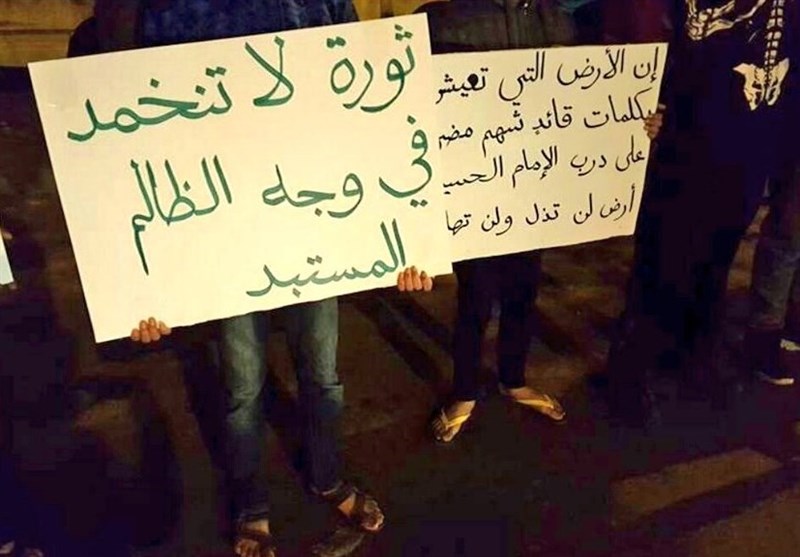 ثورة لا تنخمد
في وجه الظالم
المستبد
إن الأرض التي تعيش
بكلمات قائدٍ شهم
على درب الإمام
أرض لن تذل ولن